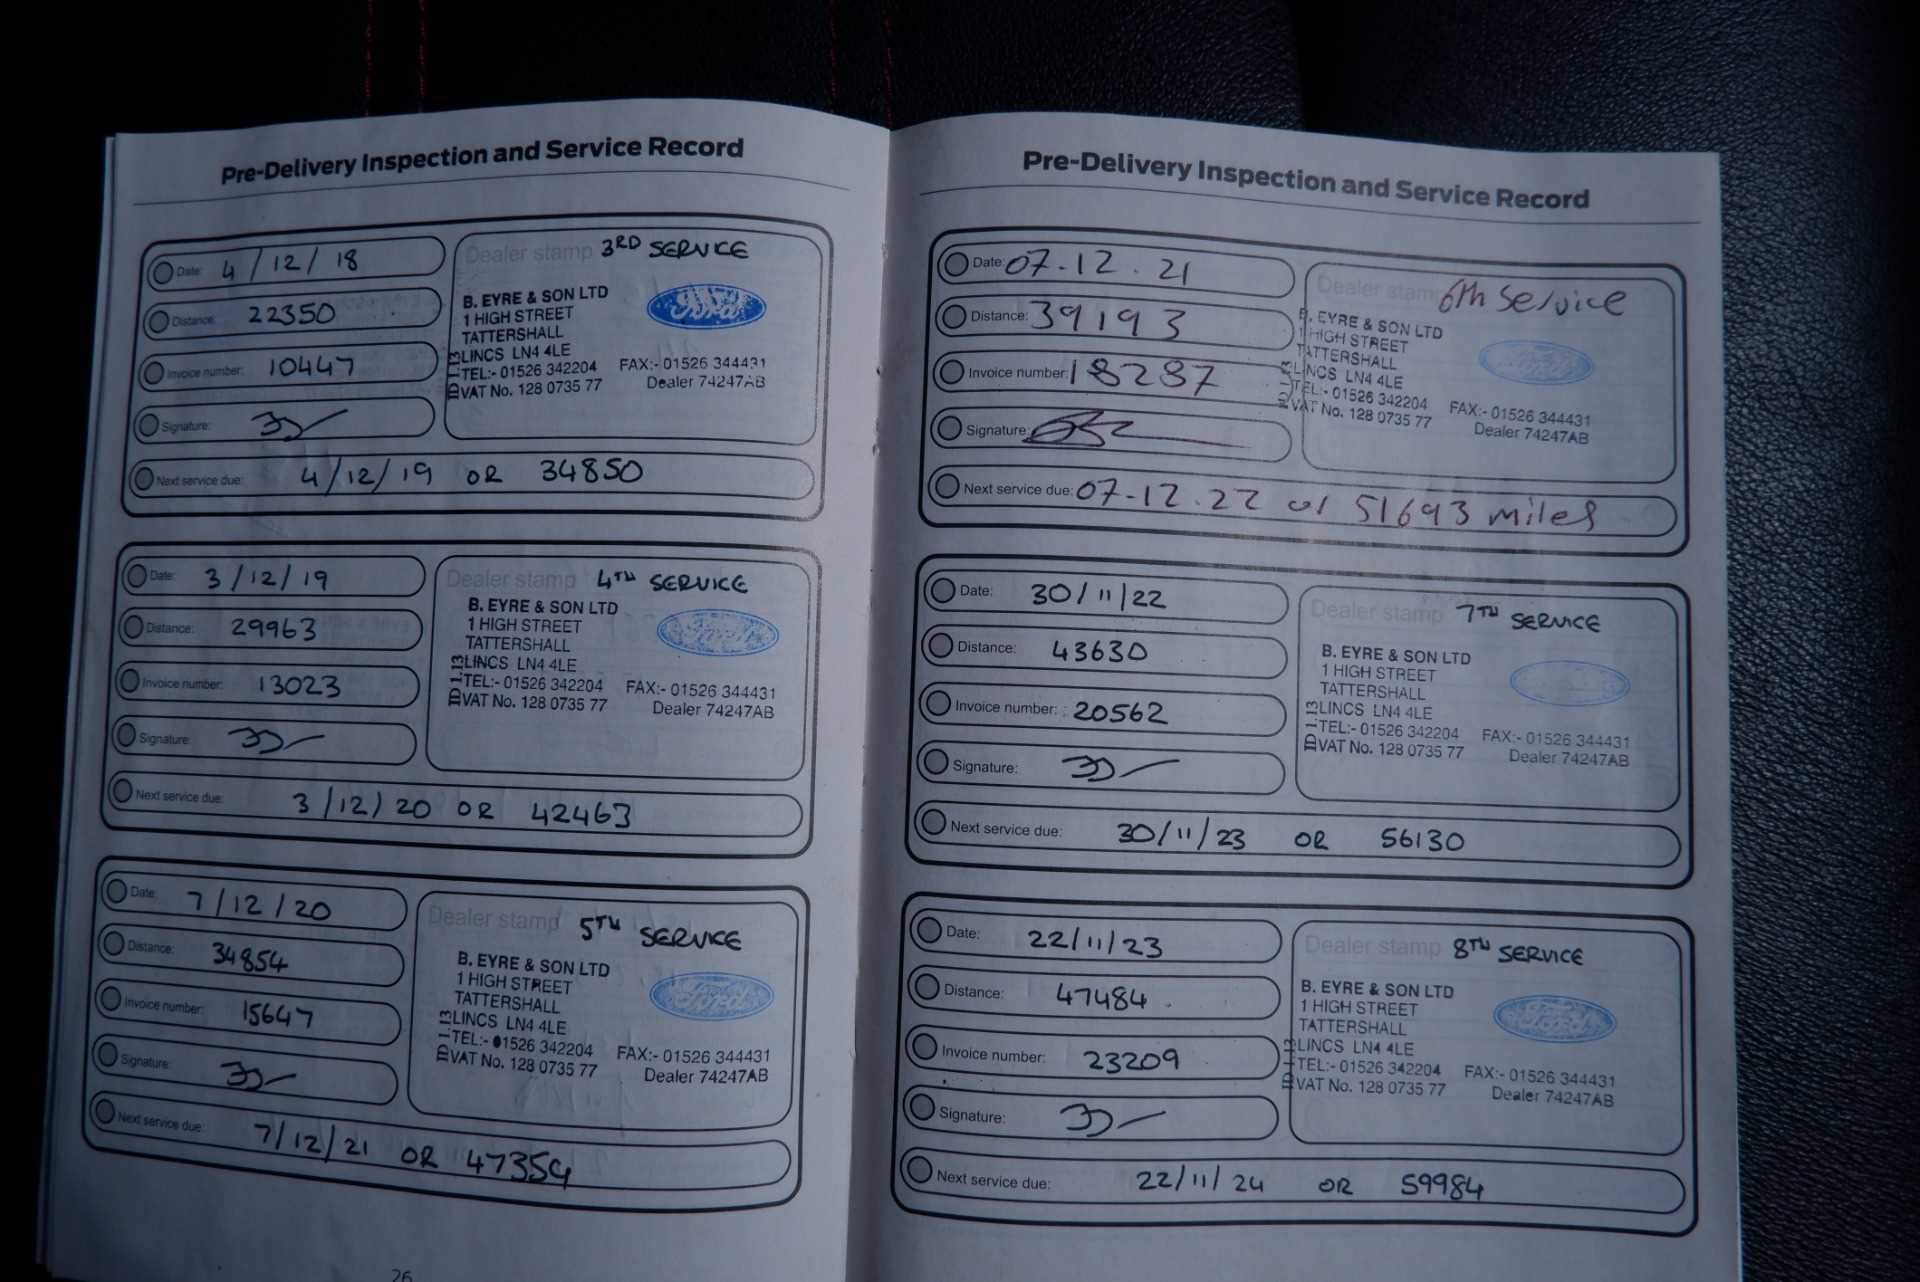 Pre-Delivery Inspection and Service Record
Date: 4/12/18
Distance: 22350
Invoice number: 10447
Signature:
Next service due: 4/12/19 OR 34850
Dealer stamp 3RD SERVICE
B. EYRE & SON LTD
1 HIGH STREET
TATTERSHALL
LINCS LN4 4LE
TEL:- 01526 342204 FAX:- 01526 344431
VAT No. 128 0735 77 Dealer 74247AB
ID 1.13
Ford
Date: 3/12/19
Distance: 29963
Invoice number: 13023
Signature:
Next service due: 3/12/20 OR 42463
Dealer stamp 4TH SERVICE
B. EYRE & SON LTD
1 HIGH STREET
TATTERSHALL
LINCS LN4 4LE
TEL:- 01526 342204 FAX:- 01526 344431
VAT No. 128 0735 77 Dealer 74247AB
ID 1.13
Ford
Date: 7/12/20
Distance: 34854
Invoice number: 15647
Signature:
Next service due: 7/12/21 OR 47354
Dealer stamp 5TH SERVICE
B. EYRE & SON LTD
1 HIGH STREET
TATTERSHALL
LINCS LN4 4LE
TEL:- 01526 342204 FAX:- 01526 344431
VAT No. 128 0735 77 Dealer 74247AB
ID 1.13
Ford
26
Pre-Delivery Inspection and Service Record
Date: 07-12.21
Distance: 39193
Invoice number: 18287
Signature:
Next service due: 07-12.22 or 51693 miles
Dealer stamp 6th Service
B. EYRE & SON LTD
1 HIGH STREET
TATTERSHALL
LINCS LN4 4LE
TEL:- 01526 342204 FAX:- 01526 344431
VAT No. 128 0735 77 Dealer 74247AB
Ford
Date: 30/11/22
Distance: 43630
Invoice number: 20562
Signature:
Next service due: 30/11/23 OR 56130
Dealer stamp 7TH SERVICE
B. EYRE & SON LTD
1 HIGH STREET
TATTERSHALL
LINCS LN4 4LE
TEL:- 01526 342204 FAX:- 01526 344431
VAT No. 128 0735 77 Dealer 74247AB
ID 1.13
Date: 22/11/23
Distance: 47484
Invoice number: 23209
Signature:
Next service due: 22/11/24 OR 59984
Dealer stamp 8TH SERVICE
B. EYRE & SON LTD
1 HIGH STREET
TATTERSHALL
LINCS LN4 4LE
TEL:- 01526 342204 FAX:- 01526 344431
VAT No. 128 0735 77 Dealer 74247AB
ID 1.13
Ford